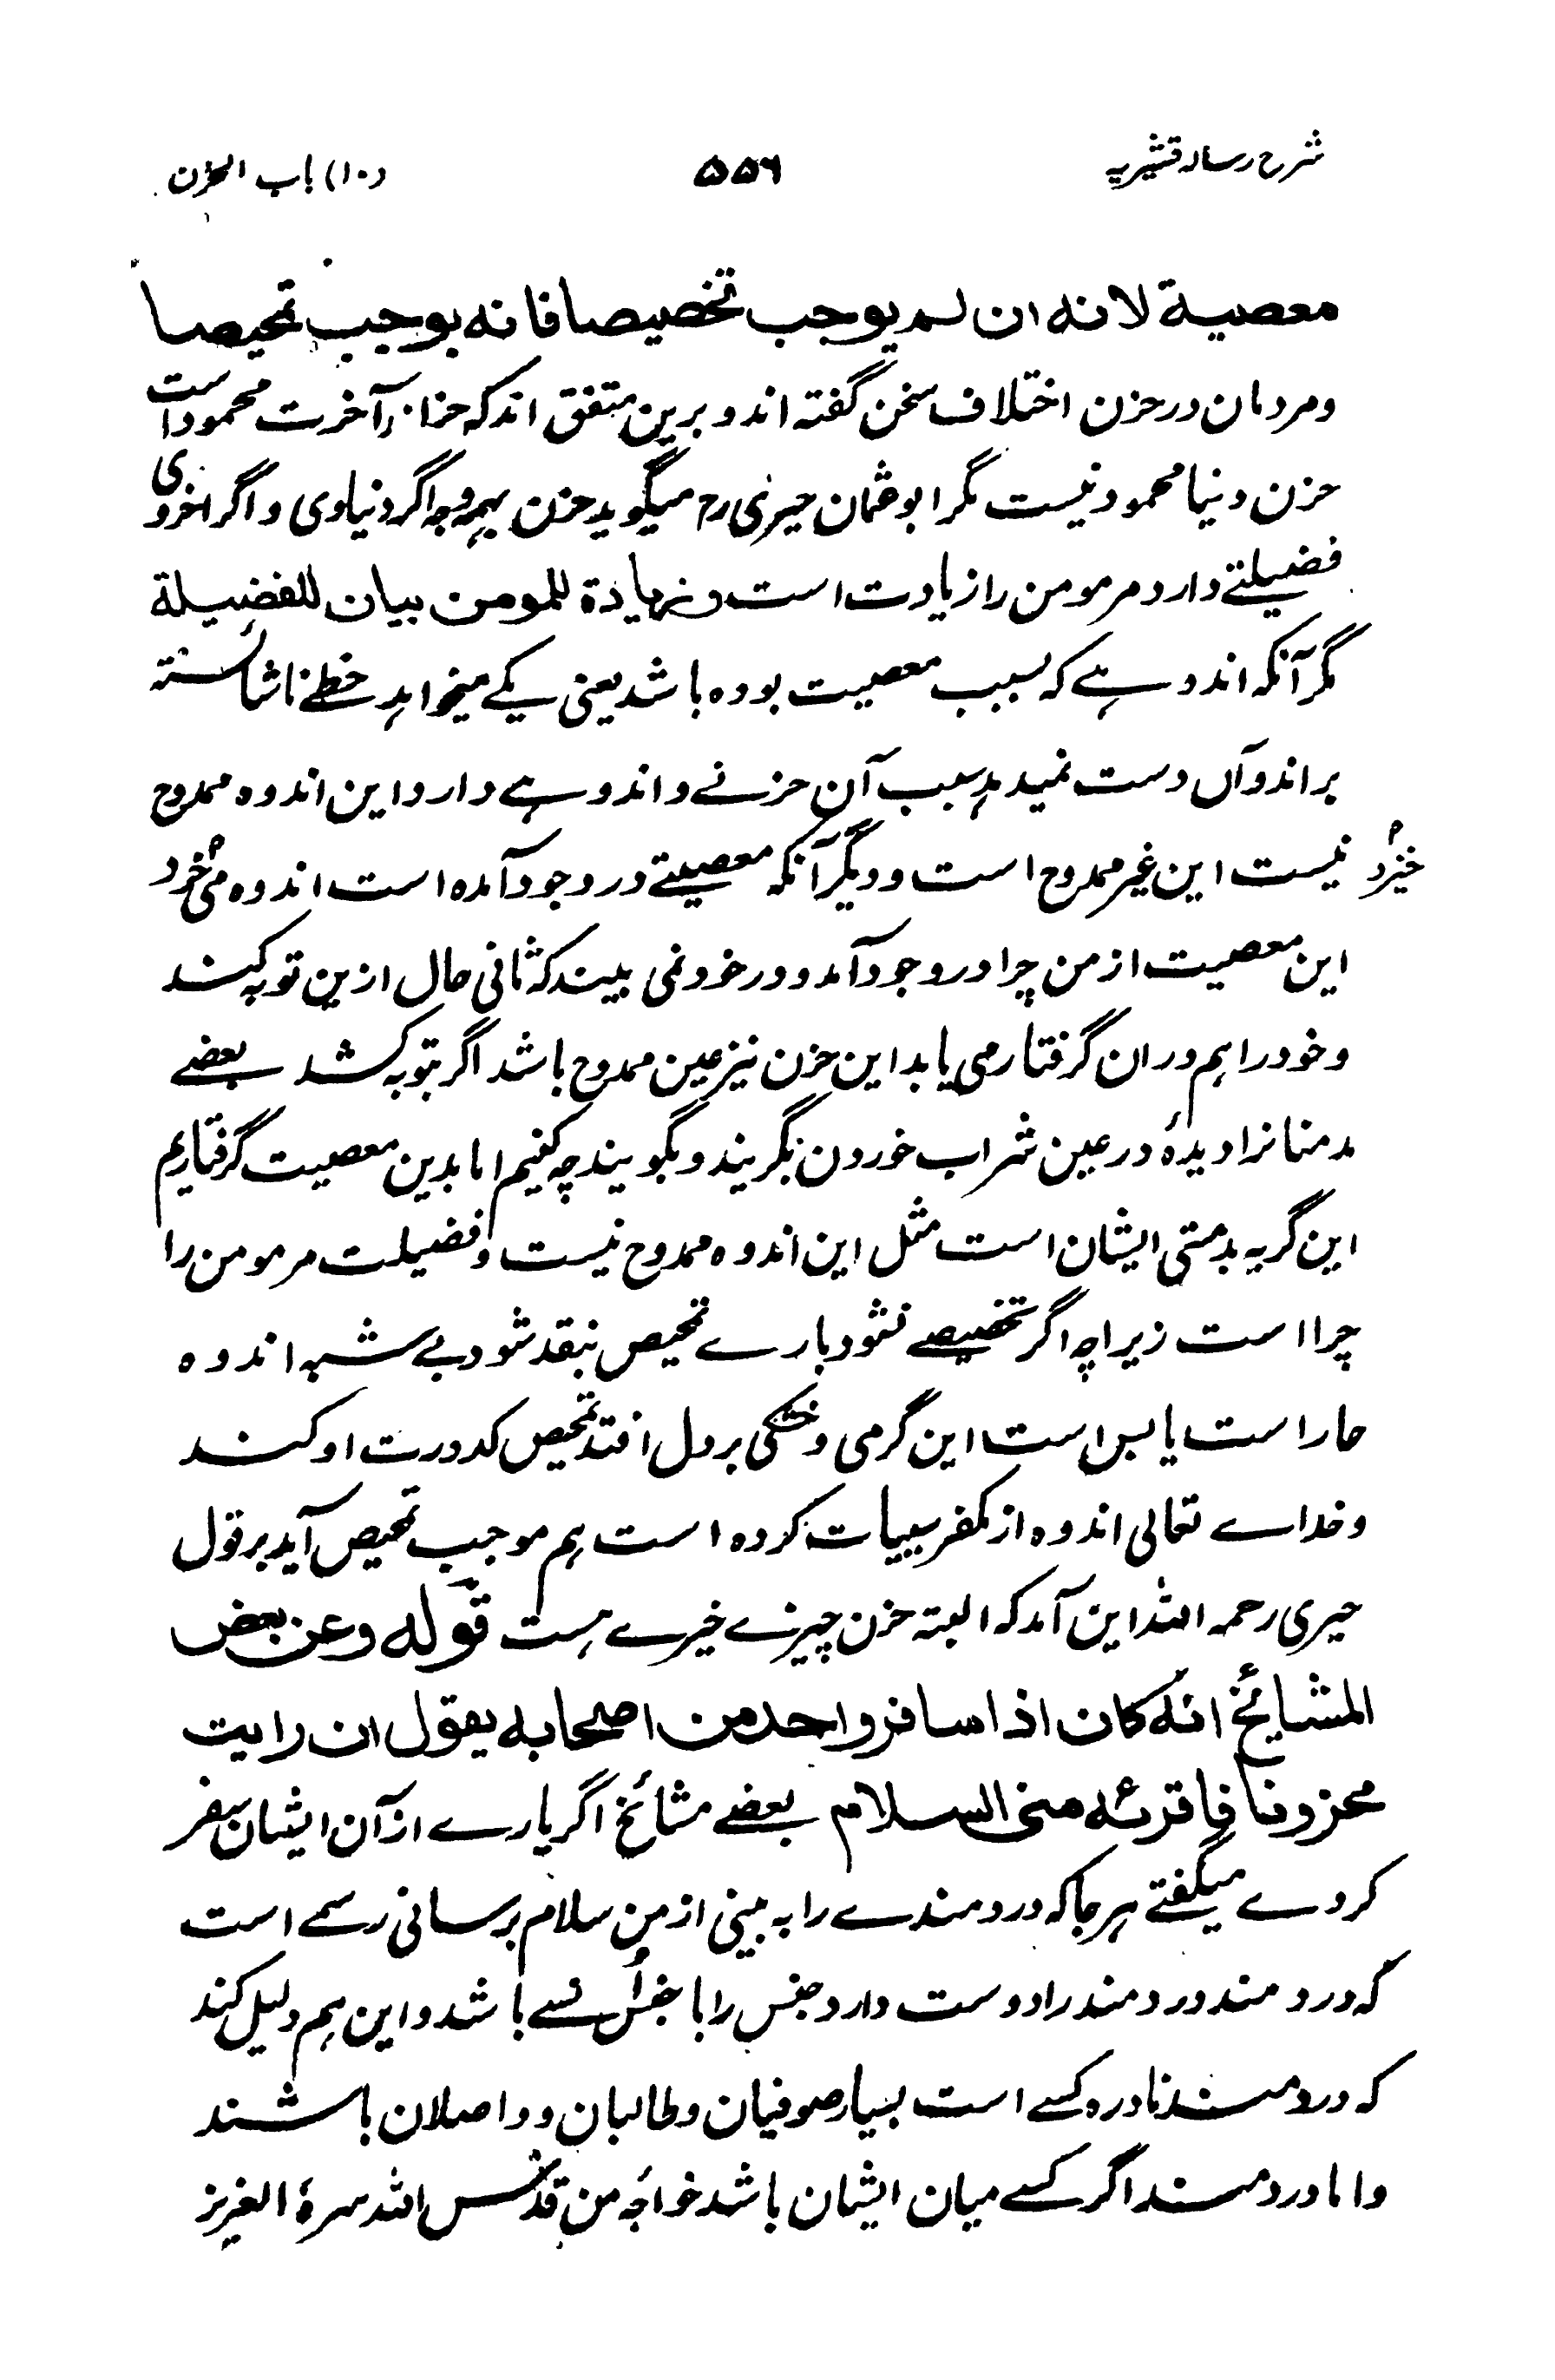 شرح رسالہ قشیریہ ۵۵۶ (۱۰) باب الحزن
معصیة لانه ان لم یوجب تخصیصا فانه یوجب تمحیصا
ومردمان در حزن اختلاف سخن گفته اند و برین متفق اند که حزن آخرت محمود است
حزن دنیا محمود نیست مگر ابو عثمان حیری رح میگوید حزن بهمه وجه اگر دنیاوی و اگر اخروی
فضیلتے دارد مر مومن را زیادت است وزیادة للمومن بیان للفضیلة
مگر آنکه اندوہے که بسبب معصیت بوده باشد یعنی یکے میخواہد خطے ناشائسته
براند و آں دست نمیدہد بسبب آن حزنے و اندوہے دارد این اندوه ممدوح
نیست این غیر ممدوح است و دیگر آنکه معصیتے در وجود آمده است اندوه می خورد
خیزد
این معصیت از من چرا در وجود آمد و در خود نمی بیند که ثانی حال ازین توبه کند
و خود را ہم در ان گرفتار می یابد این حزن نیز عین ممدوح باشد اگر بتوبه کشد بعضے
مدمنانرا دیدۂ در عین شراب خوردن بگریند و بگویند چه کنیم اما بدین معصیت گرفتاریم
این گریه بدمستی ایشان است مثل این اندوه ممدوح نیست و فضیلت مر مومن را
چرا است زیرا چه اگر تخصیصے نشود بارے تمحیص بنقد شود بے شبه اندوه
حار است یابس است این گرمی و خشکی بر دل افتد تمحیص کدورت او کند
و خداے تعالی اندوه از مکفر سییات کرده است ہم موجب تمحیص آید بر قول
حیری رحمه الله این آمد که البته حزن چیزے خیرے ہست قوله وعن بعض
المشایخ انه کان اذا سافر واحد من اصحابه یقول ان رایت
محزونا فاقرئه منی السلام بعضے مشائخ اگر یارے از آن ایشان سفر
کردے میگفتے ہر جا که دردمندے را به بینی از من سلام برسانی رسمے است
که دردمند دردمند را دوست دارد جنس را با جنس انسے باشد و این ہم دلیل کند
که دردمند نادره کسے است بسیار صوفیان و طالبان و واصلان باشند
و اما دردمند اگر کسے میان ایشان باشد خواجه من قدس الله سرهٗ العزیز